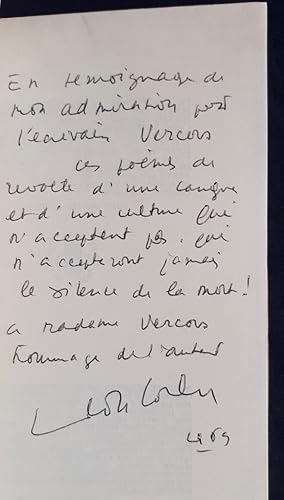 En temoignage de
mon admiration pour
l'écrivain Vercors
ces poèmes de
revolte d'une langue
et d'une culture qui
n'acceptent pas, qui
n'accepteront jamais
le silence de la mort!
a madame Vercors
hommage de l'auteur
69